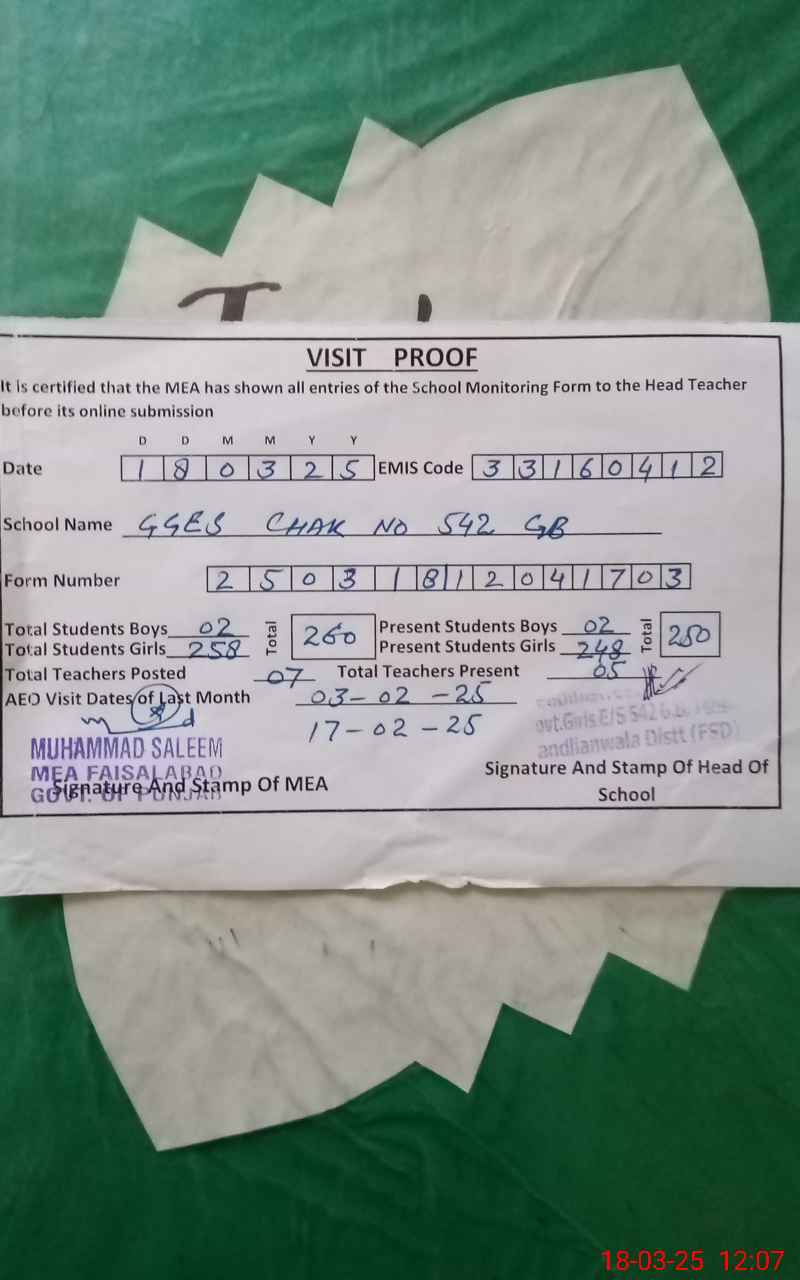 VISIT PROOF
It is certified that the MEA has shown all entries of the School Monitoring Form to the Head Teacher
before its online submission
D D M M Y Y
Date 1 8 0 3 2 5 EMIS Code 3 3 1 6 0 4 1 2
School Name GGES CHAK NO 542 GB
Form Number 2 5 0 3 1 8 1 2 0 4 1 7 0 3
Total Students Boys 02 Total 260 Present Students Boys 02 Total 250
Total Students Girls 258 Present Students Girls 248
Total Teachers Posted 07 Total Teachers Present 05
AEO Visit Dates of Last Month 03-02-25
17-02-25
MUHAMMAD SALEEM
MEA FAISALABAD
GOVT. OF PUNJAB
Signature And Stamp Of MEA
ovt.Girls.E/S 542 G.B
andlianwala Distt (FSD)
Signature And Stamp Of Head Of
School
18-03-25 12:07